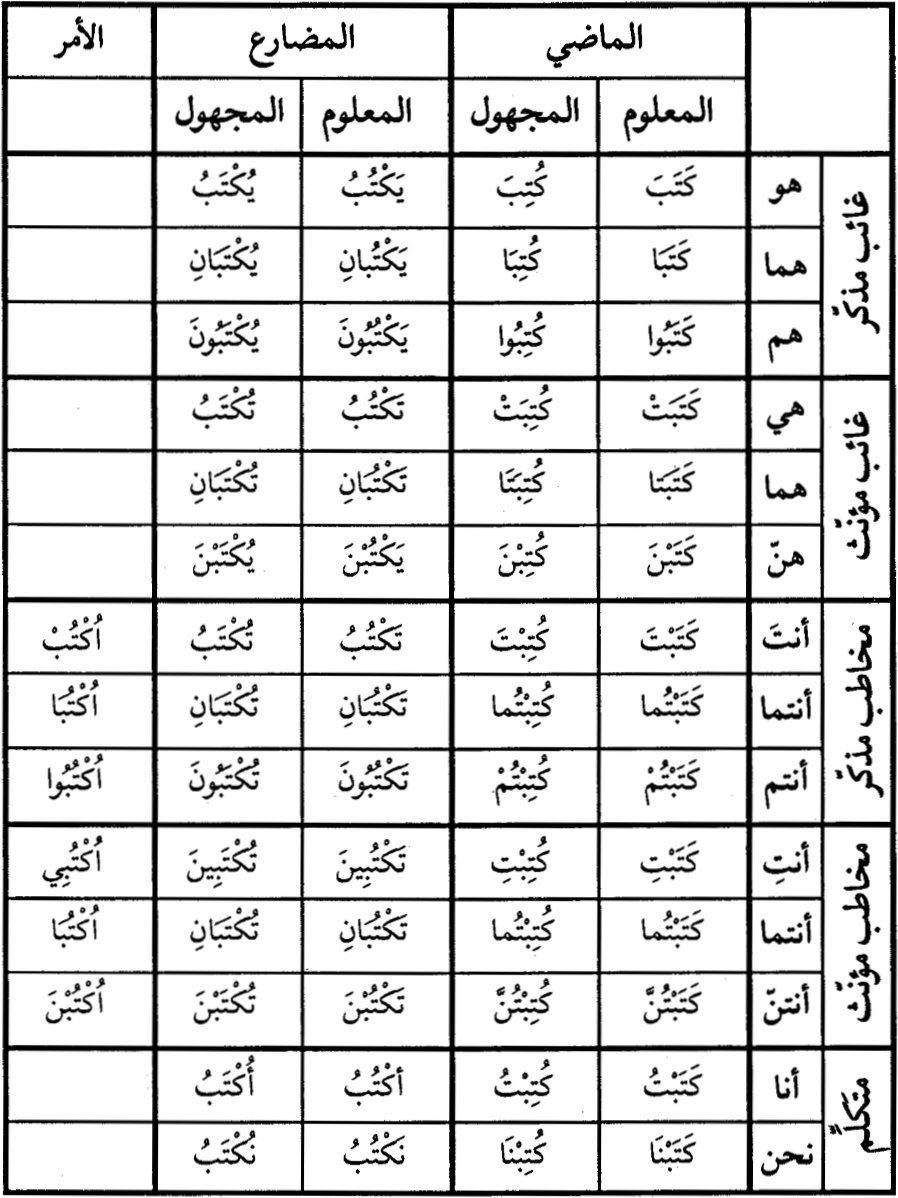 الماضي المضارع الأمر
المعلوم المجهول المعلوم المجهول
غائب مذكّر
هو كَتَبَ كُتِبَ يَكْتُبُ يُكْتَبُ
هما كَتَبَا كُتِبَا يَكْتُبَانِ يُكْتَبَانِ
هم كَتَبُوا كُتِبُوا يَكْتُبُونَ يُكْتَبُونَ
غائب مؤنّث
هي كَتَبَتْ كُتِبَتْ تَكْتُبُ تُكْتَبُ
هما كَتَبَتا كُتِبَتَا تَكْتُبَانِ تُكْتَبَانِ
هنّ كَتَبْنَ كُتِبْنَ يَكْتُبْنَ يُكْتَبْنَ
مخاطب مذكّر
أنتَ كَتَبْتَ كُتِبْتَ تَكْتُبُ تُكْتَبُ اُكْتُبْ
أنتما كَتَبْتُما كُتِبْتُما تَكْتُبَانِ تُكْتَبَانِ اُكْتُبَا
أنتم كَتَبْتُمْ كُتِبْتُمْ تَكْتُبُونَ تُكْتَبُونَ اُكْتُبُوا
مخاطب مؤنّث
أنتِ كَتَبْتِ كُتِبْتِ تَكْتُبِينَ تُكْتَبِينَ اُكْتُبِي
أنتما كَتَبْتُما كُتِبْتُما تَكْتُبَانِ تُكْتَبَانِ اُكْتُبَا
أنتنّ كَتَبْتُنَّ كُتِبْتُنَّ تَكْتُبْنَ تُكْتَبْنَ اُكْتُبْنَ
متكلّم
أنا كَتَبْتُ كُتِبْتُ أكْتُبُ أُكْتَبُ
نحن كَتَبْنَا كُتِبْنَا نَكْتُبُ نُكْتَبُ